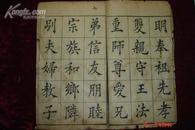 明奉祖先孝
雙親守王法
重師尊愛兄
弟信友朋睦
宗族和鄉鄰
別夫婦教子